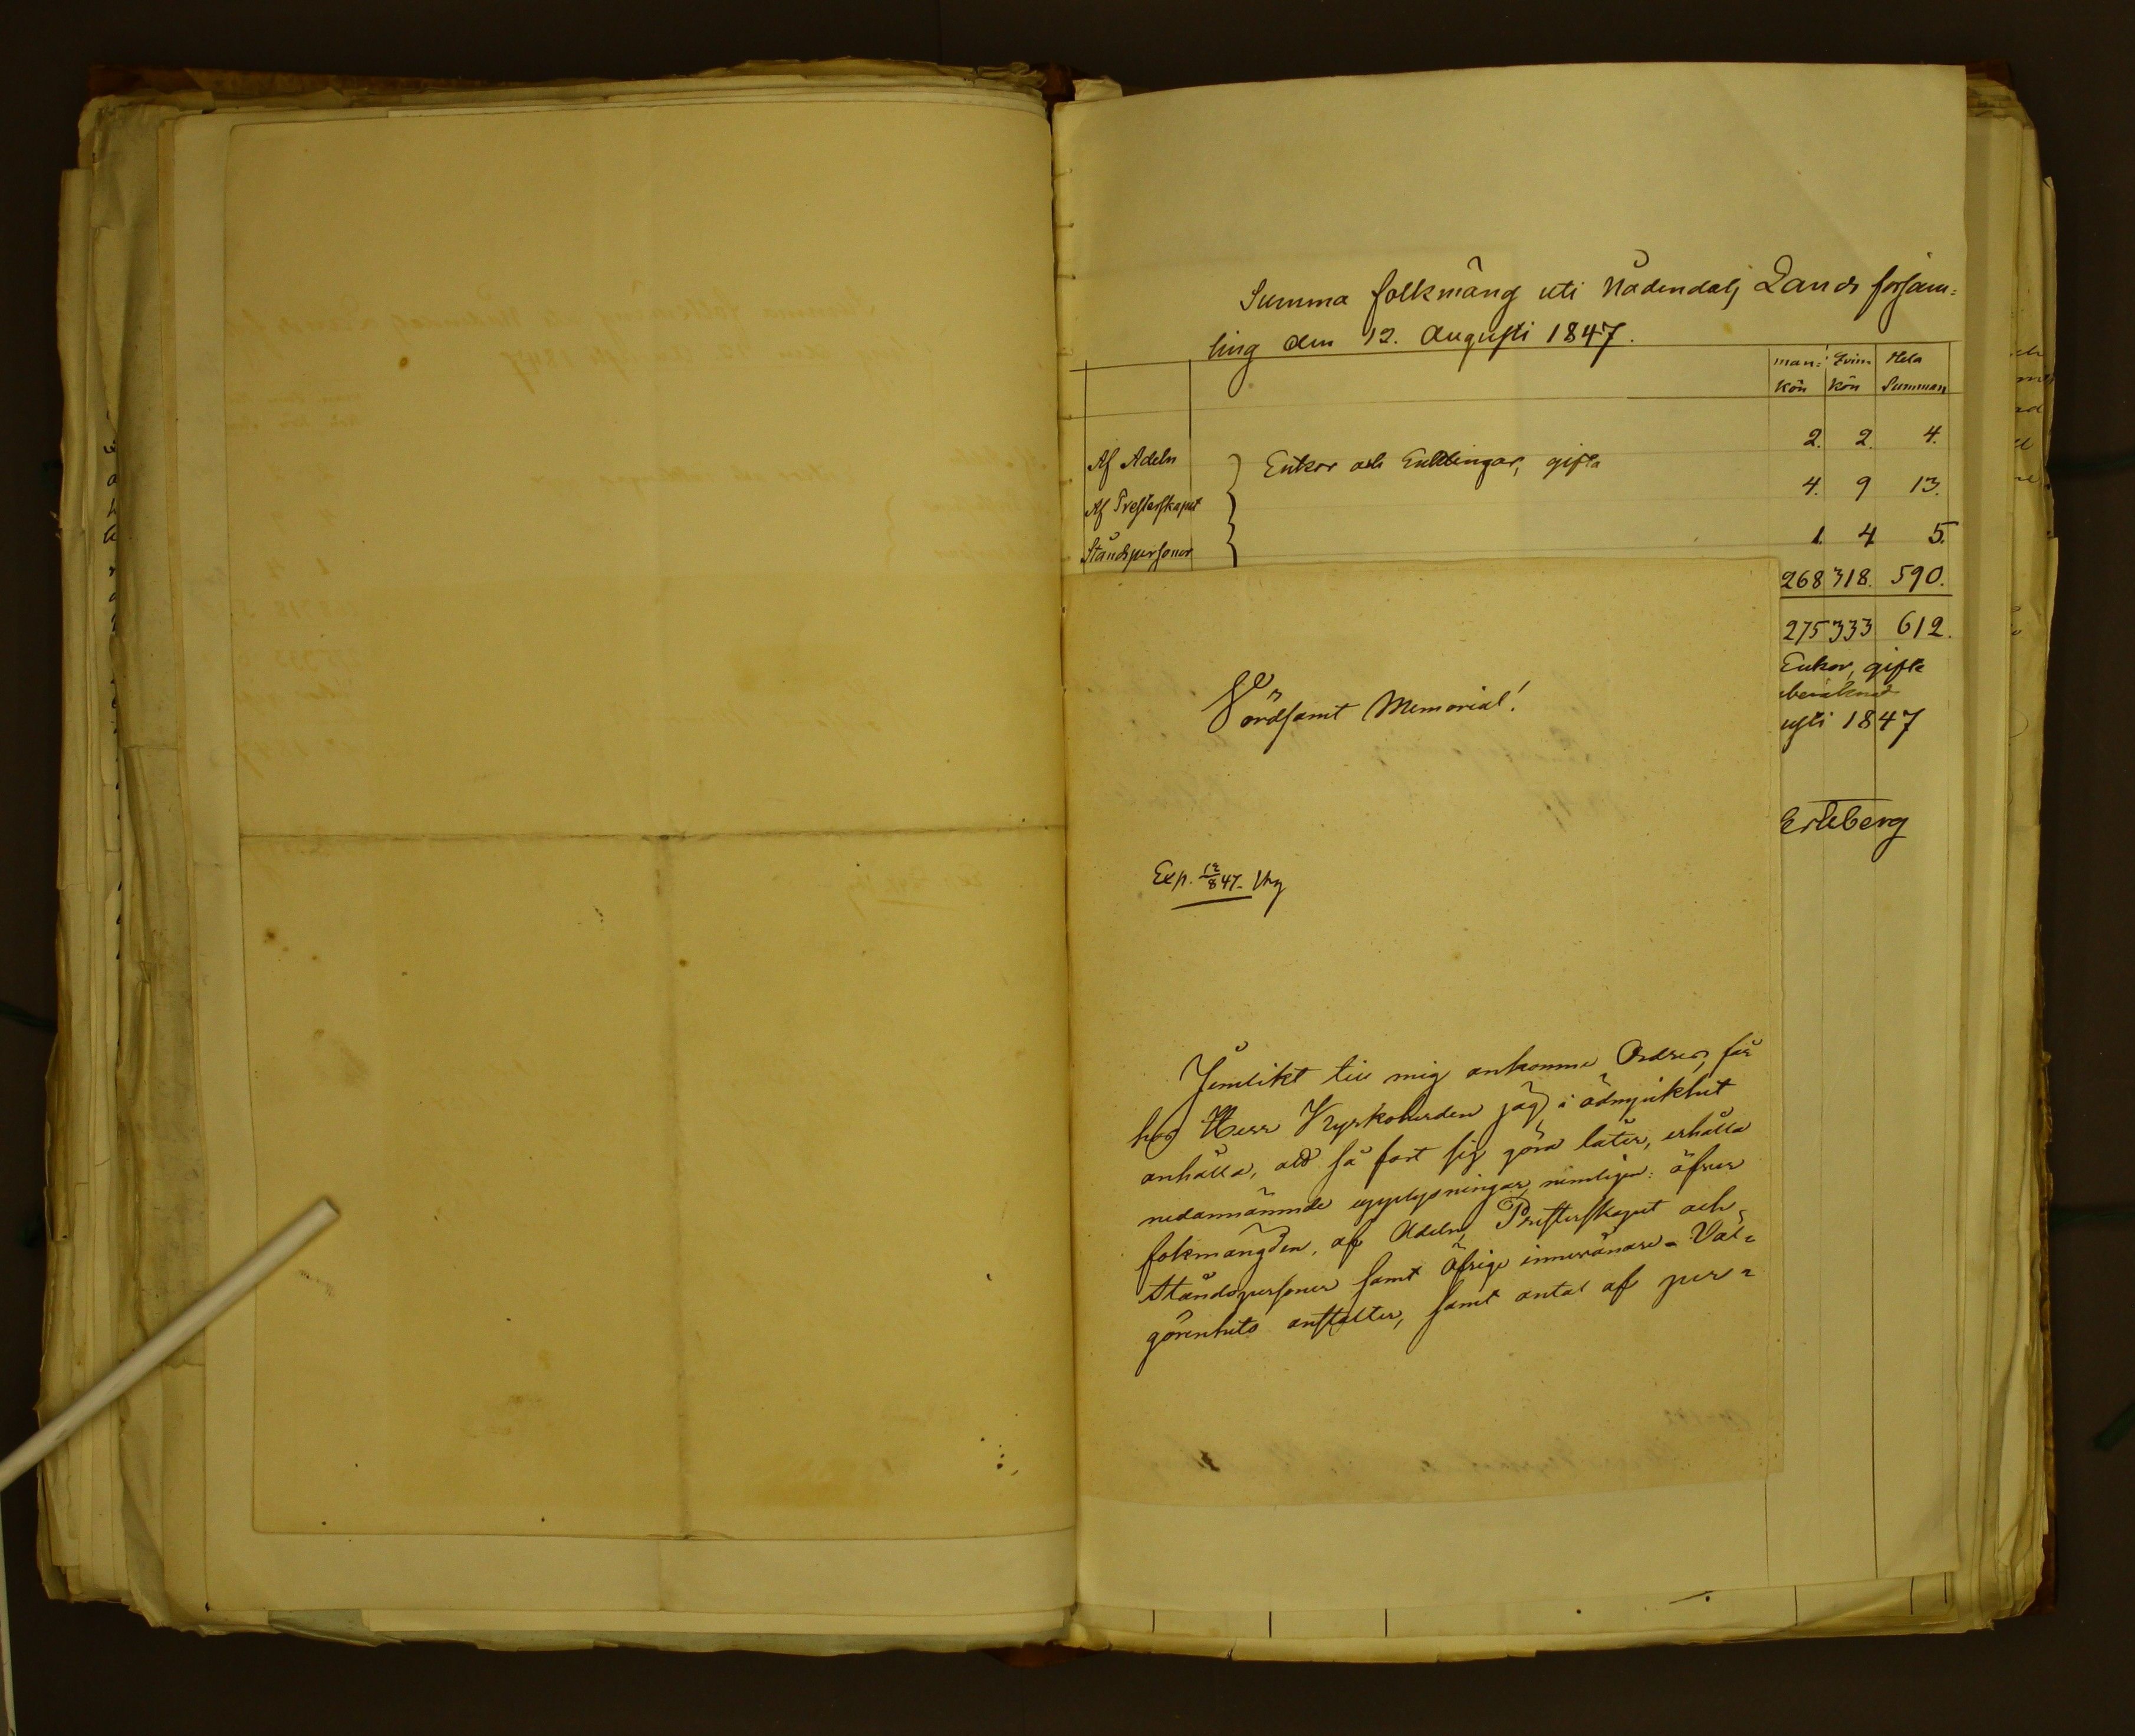 Summa folkmäng uti Nådendals Lands försam=
ling den 12. Augusti 1847.
man= Qvin= Hela
kön kön Summan
Af Adeln Enkor och Enklingar, gifta 2. 2. 4.
Af Presterskapet 4. 9 13.
Ståndspersoner 1. 4 5.
268 318. 590.
275 333 612.
Enkor, gifta
beräknad
usti 1847
Erleberg
Vördsamt Memorial!
Exp. 12/8 47.
Jemlikt till mig ankomne Ordres, får
hos Herr Kyrkoherden jag i ödmjukhet
anhålla, att så fort sig göra låter, erhålla
nedannämnde upplysningar nemligen: öfver
folkmängden, af Adeln, Presterskapet och
Ståndspersoner samt öfrige innevånare - Väl=
görenhets anstalter, samt antal af per=